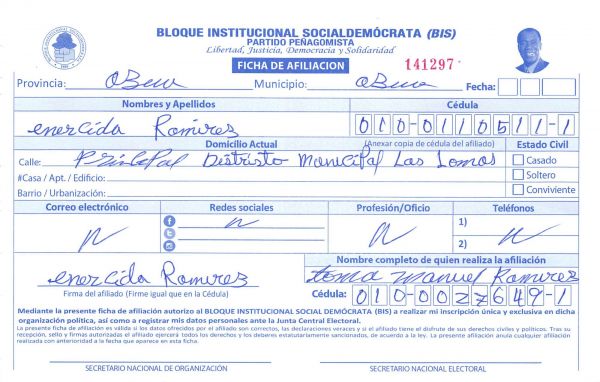 BLOQUE INSTITUCIONAL SOCIALDEMÓCRATA (BIS)
PARTIDO PEÑAGOMISTA
Libertad, Justicia, Democracia y Solidaridad
FICHA DE AFILIACION
141297
Provincia: Municipio: Fecha:
Nombres y Apellidos Cédula
enercida Ramires 010-0110511-1
Domicilio Actual (Anexar copia de cédula del afiliado) Estado Civil
Calle: Principal Distristo Municipal Las Lomas Casado
#Casa / Apt. / Edificio: Soltero
Barrio / Urbanización: Conviviente
Correo electrónico Redes sociales Profesión/Oficio Teléfonos
N N N 1)
2) N
Nombre completo de quien realiza la afiliación
enercida Ramires toma manuel Ramires
Firma del afiliado (Firme igual que en la Cédula) Cédula: 010-0027649-1
Mediante la presente ficha de afiliación autorizo al BLOQUE INSTITUCIONAL SOCIAL DEMÓCRATA (BIS) a realizar mi inscripción única y exclusiva en dicha
organización política, así como a registrar mis datos personales ante la Junta Central Electoral.
La presente ficha de afiliación es válida si los datos ofrecidos por el afiliado son correctos, las declaraciones veraces y si el afiliado tiene el disfrute de sus derechos civiles y políticos. Tras su
recepción, sello y firmas autorizadas el afiliado ejercerá todos los derechos y los deberes estatutariamente sancionados, de acuerdo a la ley. La presente afiliación anula cualquier afiliación
realizada con anterioridad a la fecha que aparece en esta ficha.
SECRETARIO NACIONAL DE ORGANIZACIÓN SECRETARIO NACIONAL ELECTORAL